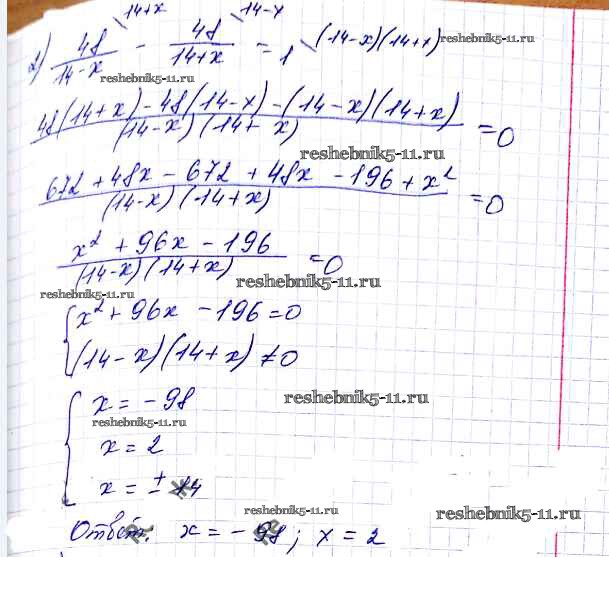 14+x 14-x
2) 48/(14-x) - 48/(14+x) = 1 (14-x)(14+x) reshebnik5-11.ru
reshebnik5-11.ru
48(14+x)-48(14-x)-(14-x)(14+x)/(14-x)(14+x) = 0
reshebnik5-11.ru
672+48x-672+48x-196+x²/(14-x)(14+x) = 0
x²+96x-196/(14-x)(14+x) = 0
reshebnik5-11.ru reshebnik5-11.ru
{x²+96x-196=0
(14-x)(14+x)≠0
{x=-98 reshebnik5-11.ru
reshebnik5-11.ru
x=2
x=±14
reshebnik5-11.ru reshebnik5-11.ru
Ответ: x=-98; x=2